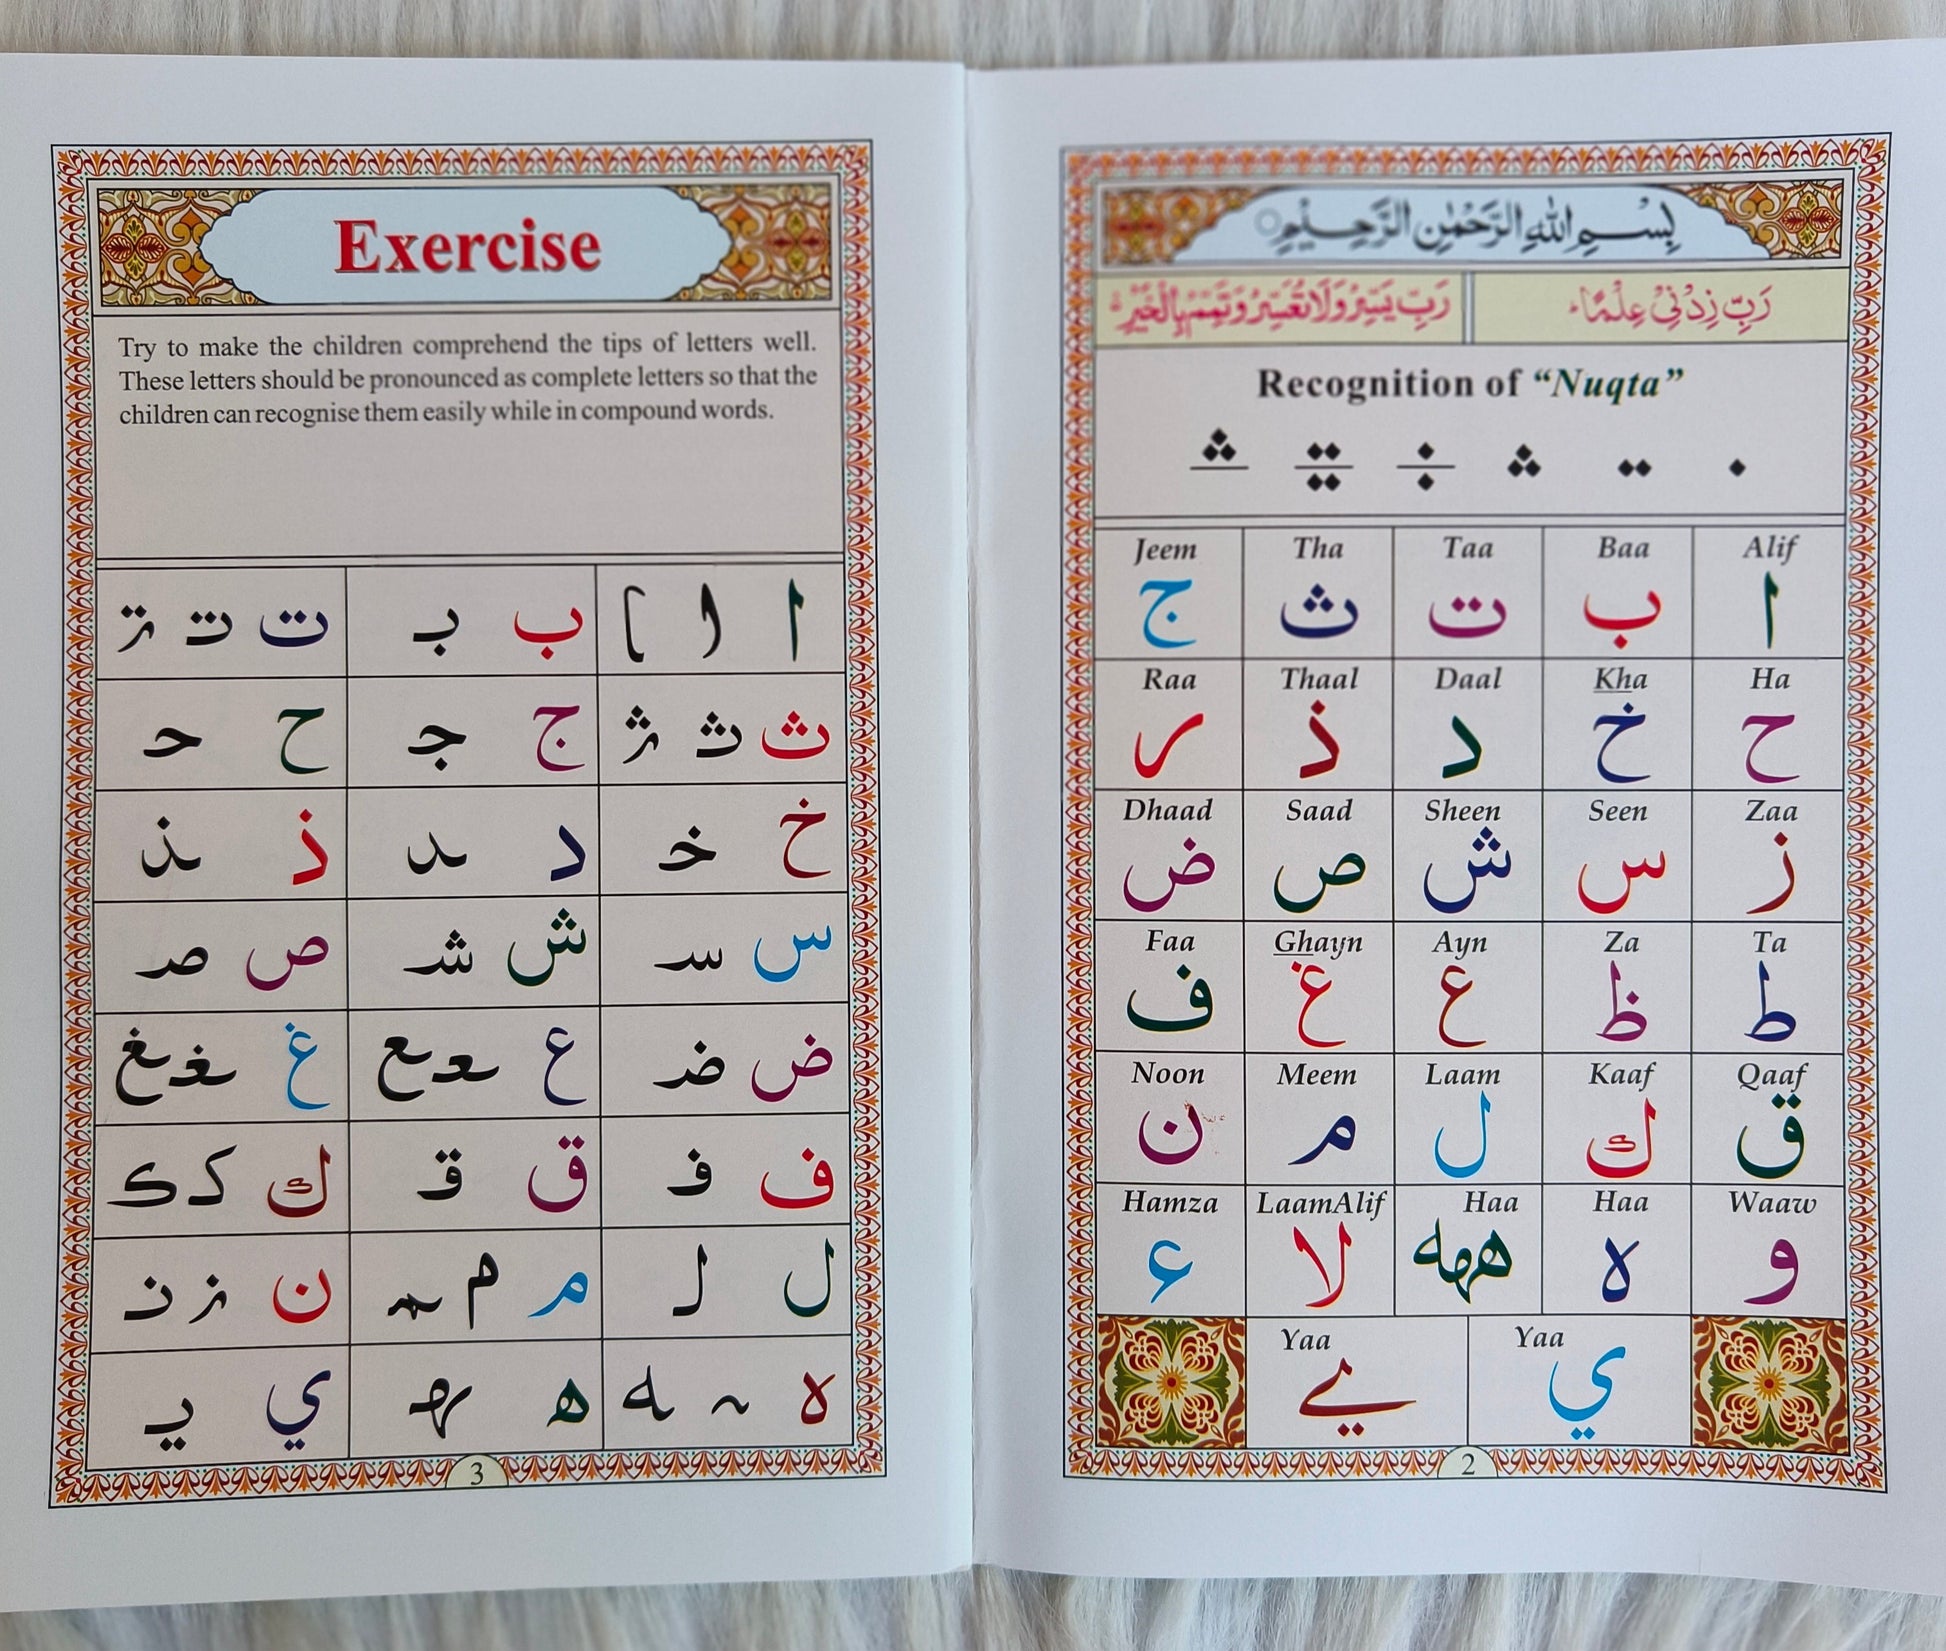 بِسْمِ اللهِ الرَّحْمٰنِ الرَّحِيْمِ
رَبِّ زِدْنِيْ عِلْمًا
رَبِّ يَسِّرْ وَلَا تُعَسِّرْ وَتَمِّمْ بِالْخَيْرِ
Recognition of “Nuqta”
Alif Baa Taa Tha Jeem
ا ب ت ث ج
Ha Kha Daal Thaal Raa
ح خ د ذ ر
Zaa Seen Sheen Saad Dhaad
ز س ش ص ض
Ta Za Ayn Ghayn Faa
ط ظ ع غ ف
Qaaf Kaaf Laam Meem Noon
ق ك ل م ن
Waaw Haa Haa LaamAlif Hamza
و ه ههه لا ء
Yaa Yaa
ي ے
2
Exercise
Try to make the children comprehend the tips of letters well.
These letters should be pronounced as complete letters so that the
children can recognise them easily while in compound words.
ا ا ا ب بـ ت تـ تـ
ث ثـ ثـ ج جـ ح حـ
خ خـ د ـد ذ ـذ
س سـ ش شـ ص صـ
ض ضـ ع ـعـ ـع غ ـغـ ـغ
ف فـ ق قـ ك كـ كـ
ل لـ م ـم ـمـ ن نـ نـ
ه ـہـ ـه ھ ـهـ ي يـ
3